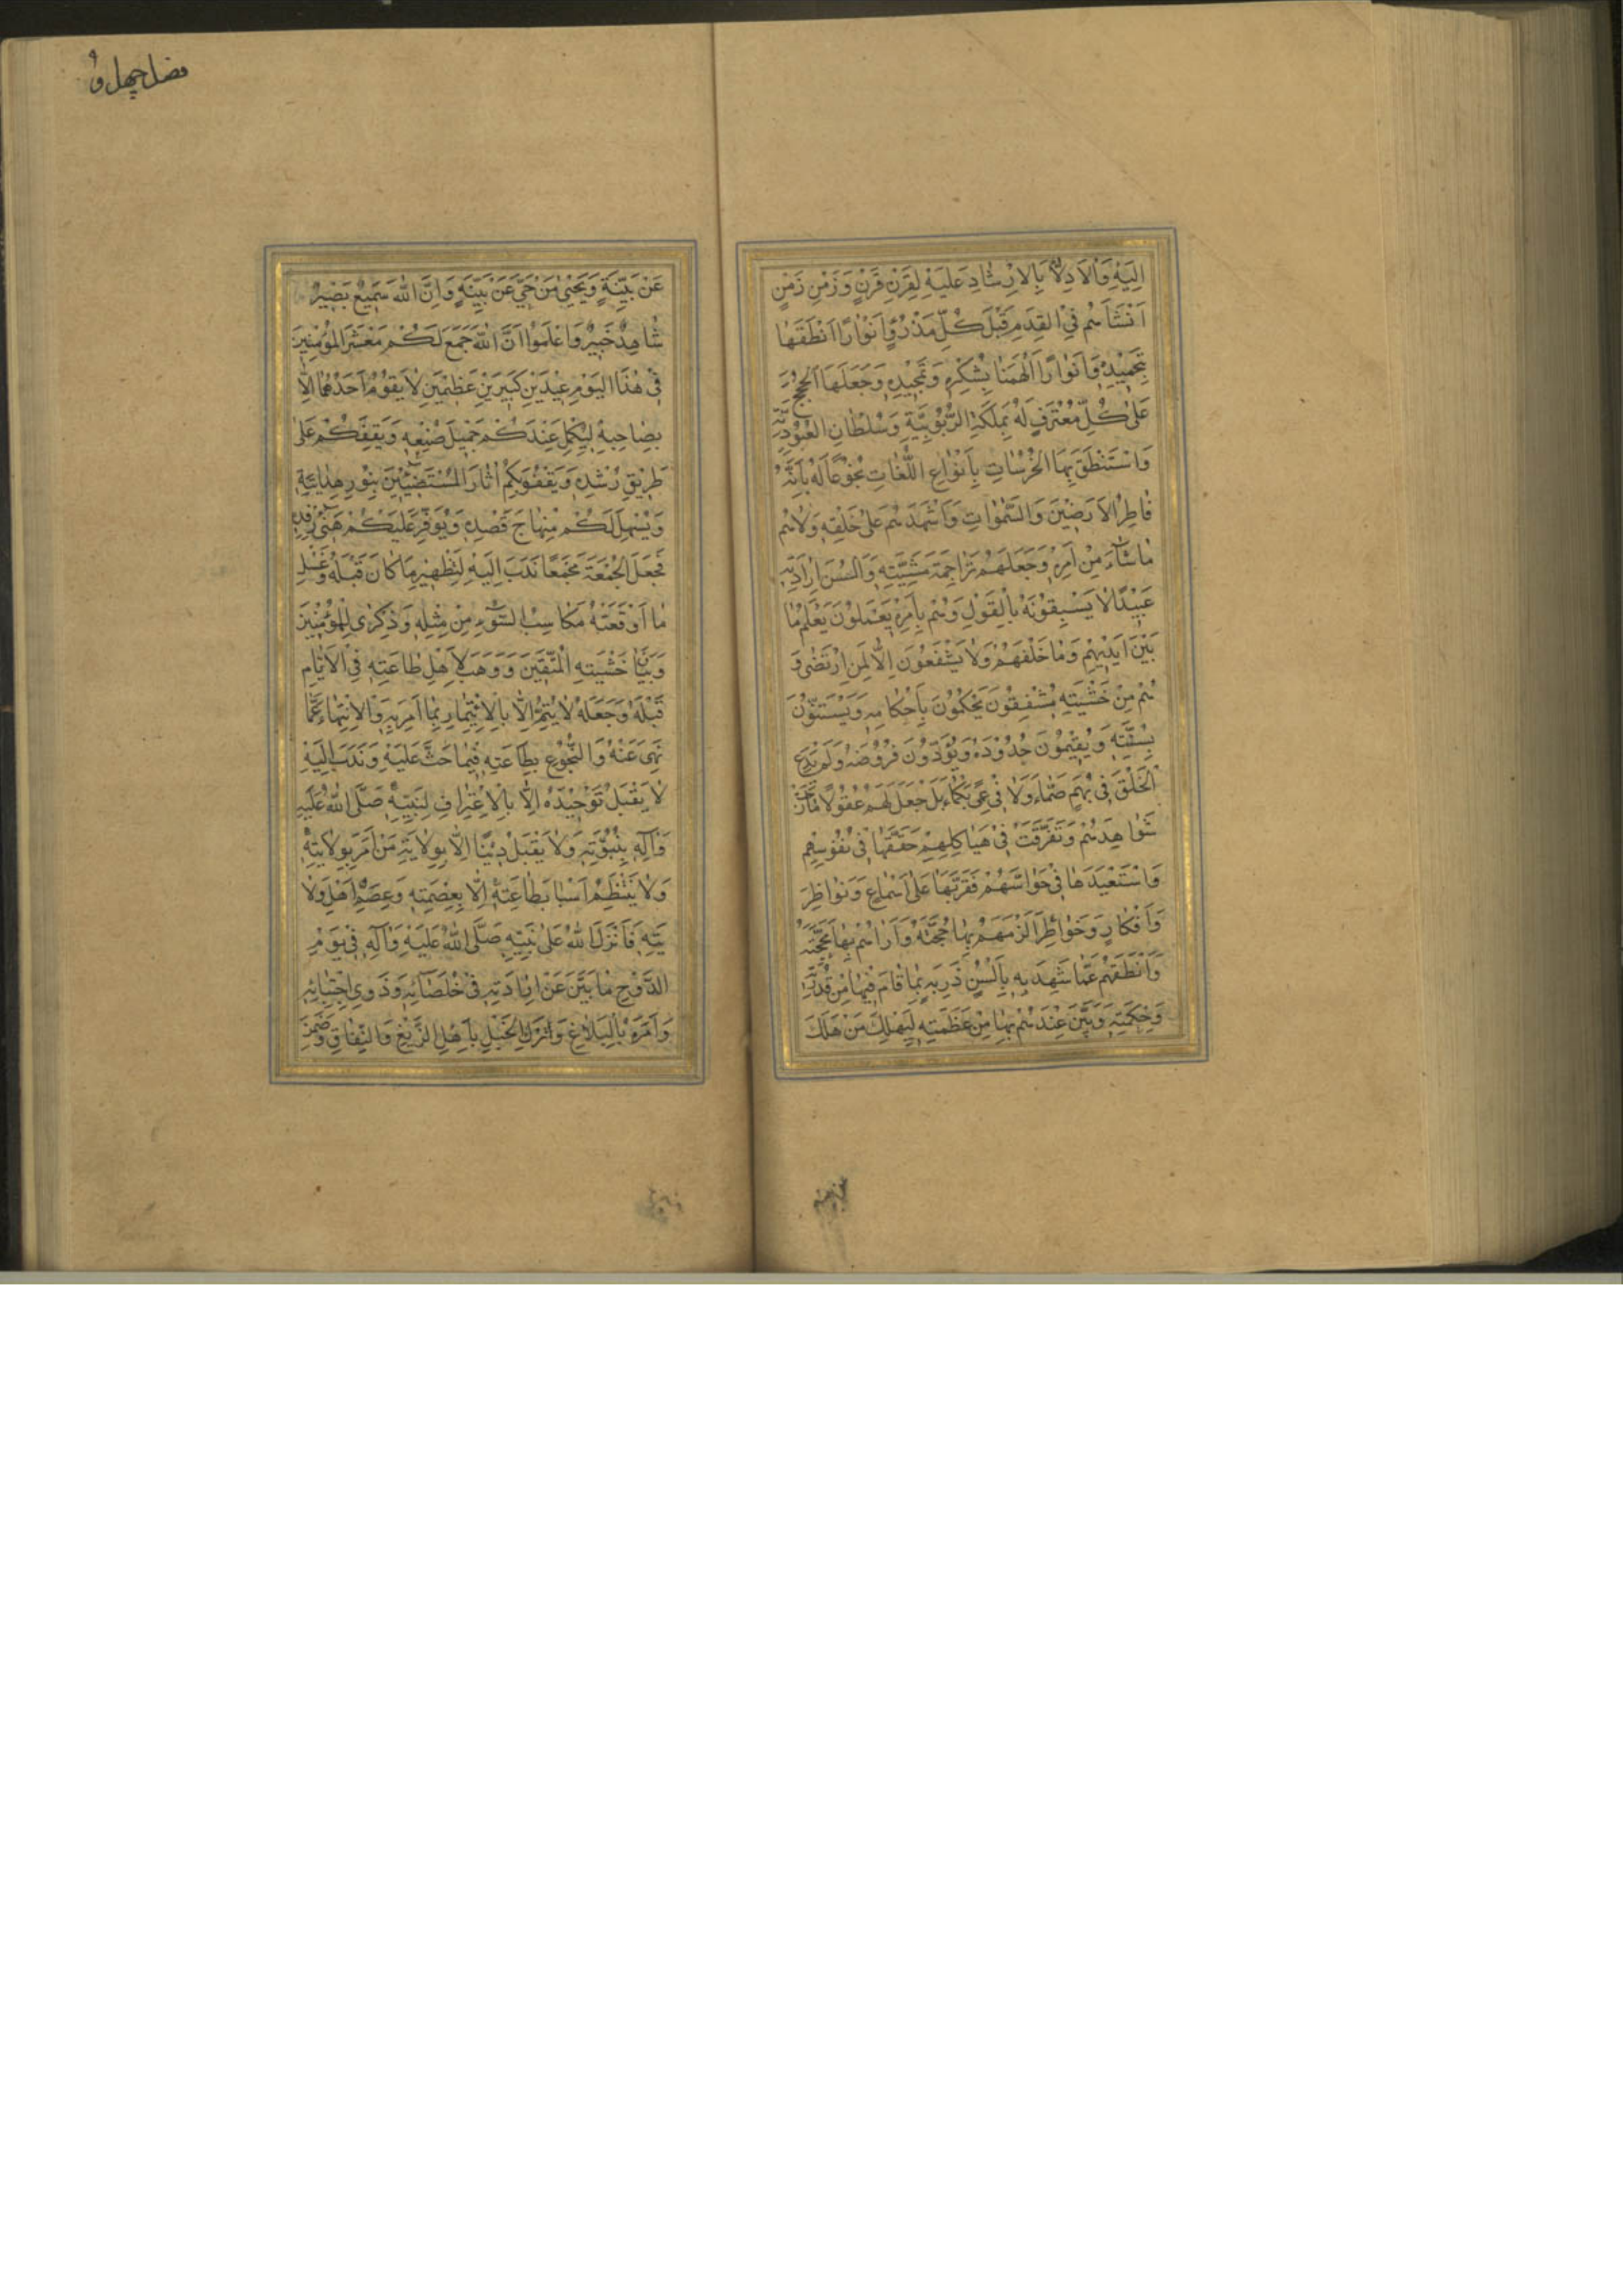 اِلَيْهِ وَالْاَدِلّاءِ بِالْاِرْشادِ عَلَيْهِ لِقَرْنٍ قَرْنٍ وَزَمَنٍ زَمَنٍ
اَنْشَأَهُمْ فِي الْقِدَمِ قَبْلَ كُلِّ مَذْرُوٍّ وَاَنْوارًا اَنْطَقَها
بِتَحْمِيْدِهٖ وَاَنْوارًا اَلْهَمَنا بِشُكْرِهٖ وَتَمْجِيْدِهٖ وَجَعَلَهَا الْحُجَجَ
عَلٰى كُلِّ مُعْتَرِفٍ لَهُ بِمَلَكَةِ الرُّبُوْبِيَّةِ وَسُلْطانِ الْعُبُوْدِيَّةِ
وَاسْتَنْطَقَ بِهَا الْخُرْسَاتِ بِاَنْواعِ اللُّغاتِ بُخُوْعًا لَهُ بِاَنَّهُ
فاطِرُ الْاَرَضِيْنَ وَالسَّمٰواتِ وَاَشْهَدَهُمْ عَلٰى خَلْقِهٖ وَلاهُمْ
ماشاءَ مِنْ اَمْرِهٖ وَجَعَلَهُمْ تَراجِمَةَ مَشِيَّتِهٖ وَاَلْسُنَ اِرادَتِهٖ
عَبِيْدًا لا يَسْبِقُوْنَهُ بِالْقَوْلِ وَهُمْ بِاَمْرِهٖ يَعْمَلُوْنَ يَعْلَمُ ما
بَيْنَ اَيْدِيْهِمْ وَما خَلْفَهُمْ وَلا يَشْفَعُوْنَ اِلّا لِمَنِ ارْتَضٰى وَ
هُمْ مِنْ خَشْيَتِهٖ مُشْفِقُوْنَ يَحْكُمُوْنَ بِاَحْكامِهٖ وَيَسْتَنُّوْنَ
بِسُنَّتِهٖ وَيُقِيْمُوْنَ حُدُوْدَهُ وَيُؤَدُّوْنَ فُرُوْضَهُ وَلَمْ يَدَعِ
الْخَلْقَ فِي بُهَمٍ صَمّاءَ وَلا فِي عَمًى بَكْماءَ بَلْ جَعَلَ لَهُمْ عُقُوْلًا مازَجَتْ
شَواهِدَهُمْ وَتَفَرَّقَتْ فِي هَياكِلِهِمْ حَقَّقَها فِي نُفُوْسِهِمْ
وَاسْتَعْبَدَ لَها فِي حَواسَّهُمْ فَقَرَّبَها عَلٰى اَسْماعٍ وَنَواظِرَ
وَاَفْكارٍ وَخَواطِرَ اَلْزَمَهُمْ بِها حُجَّتَهُ وَاَراهُمْ بِها مَحَجَّتَهُ
وَاَنْطَقَهُمْ عَمّا شَهِدَ بِهٖ بِاَلْسُنٍ ذَرِبَةٍ بِما قامَ فِيْها مِنْ قُدْرَتِهٖ
وَحِكْمَتِهٖ وَبَيَّنَ عِنْدَهُمْ بِها مِنْ عَظَمَتِهٖ لِيَهْلِكَ مَنْ هَلَكَ
فضل چهل و
عَنْ بَيِّنَةٍ وَيَحْيٰى مَنْ حَيَّ عَنْ بَيِّنَةٍ وَاِنَّ اللّٰهَ سَمِيْعٌ بَصِيْرٌ
شاهِدٌ خَبِيْرٌ وَاعْلَمُوْا اَنَّ اللّٰهَ جَمَعَ لَكُمْ مَعْشَرَ الْمُؤْمِنِيْنَ
فِي هٰذَا الْيَوْمِ عِيْدَيْنِ كَبِيْرَيْنِ عَظِيْمَيْنِ لا يَقُوْمُ اَحَدُهُما اِلّا
بِصاحِبِهٖ لِيُكْمِلَ عِنْدَكُمْ جَمِيْلَ صُنْعِهٖ وَيَقِفَكُمْ عَلٰى
طَرِيْقِ رُشْدِهٖ وَيَقْفُوَ بِكُمْ اٰثارَ الْمُسْتَضِيْئِيْنَ بِنُوْرِ هِدايَتِهٖ
وَيُسَهِّلَ لَكُمْ مِنْهاجَ قَصْدِهٖ وَيُوَفِّرَ عَلَيْكُمْ هَنِيْءَ رِفْدِهٖ
فَجَعَلَ الْجُمُعَةَ مَجْمَعًا نَدَبَ اِلَيْهِ لِتَطْهِيْرِ ما كانَ قَبْلَهُ وَغَسْلِ
ما اَوْقَعَتْهُ مَكاسِبُ السُّوْءِ مِنْ مِثْلِهٖ وَذِكْرٰى لِلْمُؤْمِنِيْنَ
وَبَيانَ خَشْيَتِهِ الْمُتَّقِيْنَ وَوَهَبَ لِاَهْلِ طاعَتِهٖ فِي الْاَيّامِ
قَبْلَهُ وَجَعَلَهُ لا يُتِمُّ اِلّا بِالْاِئْتِمارِ بِما اَمَرَ بِهٖ وَالْاِنْتِهاءِ عَمّا
نَهٰى عَنْهُ وَالْبُخُوْعِ بِطاعَتِهٖ فِيْما حَثَّ عَلَيْهِ وَنَدَبَ اِلَيْهِ
لا يَقْبَلُ تَوْحِيْدَهُ اِلّا بِالْاِعْتِرافِ لِنَبِيِّهٖ صَلَّى اللّٰهُ عَلَيْهِ
وَاٰلِهٖ بِنُبُوَّتِهٖ وَلا يَقْبَلُ دِيْنًا اِلّا بِوِلايَةِ مَنْ اَمَرَ بِوِلايَتِهٖ
وَلا يَنْتَظِمُ اَسْبابَ طاعَتِهٖ اِلّا بِعِصْمَتِهٖ وَعِصَمِ اَهْلِ وَلا
يَتِهٖ فَاَنْزَلَ اللّٰهُ عَلٰى نَبِيِّهٖ صَلَّى اللّٰهُ عَلَيْهِ وَاٰلِهٖ فِي يَوْمِ
الدَّوْحِ ما بَيَّنَ عَنْ اِرادَتِهٖ فِي خُلَصائِهٖ وَذَوِي اجْتِبائِهٖ
وَاَمَرَهُ بِالْبَلاغِ وَاتْرُكِ الْحَبْلَ بِاَهْلِ الزَّيْغِ وَالنِّفاقِ وَضَمِنَ